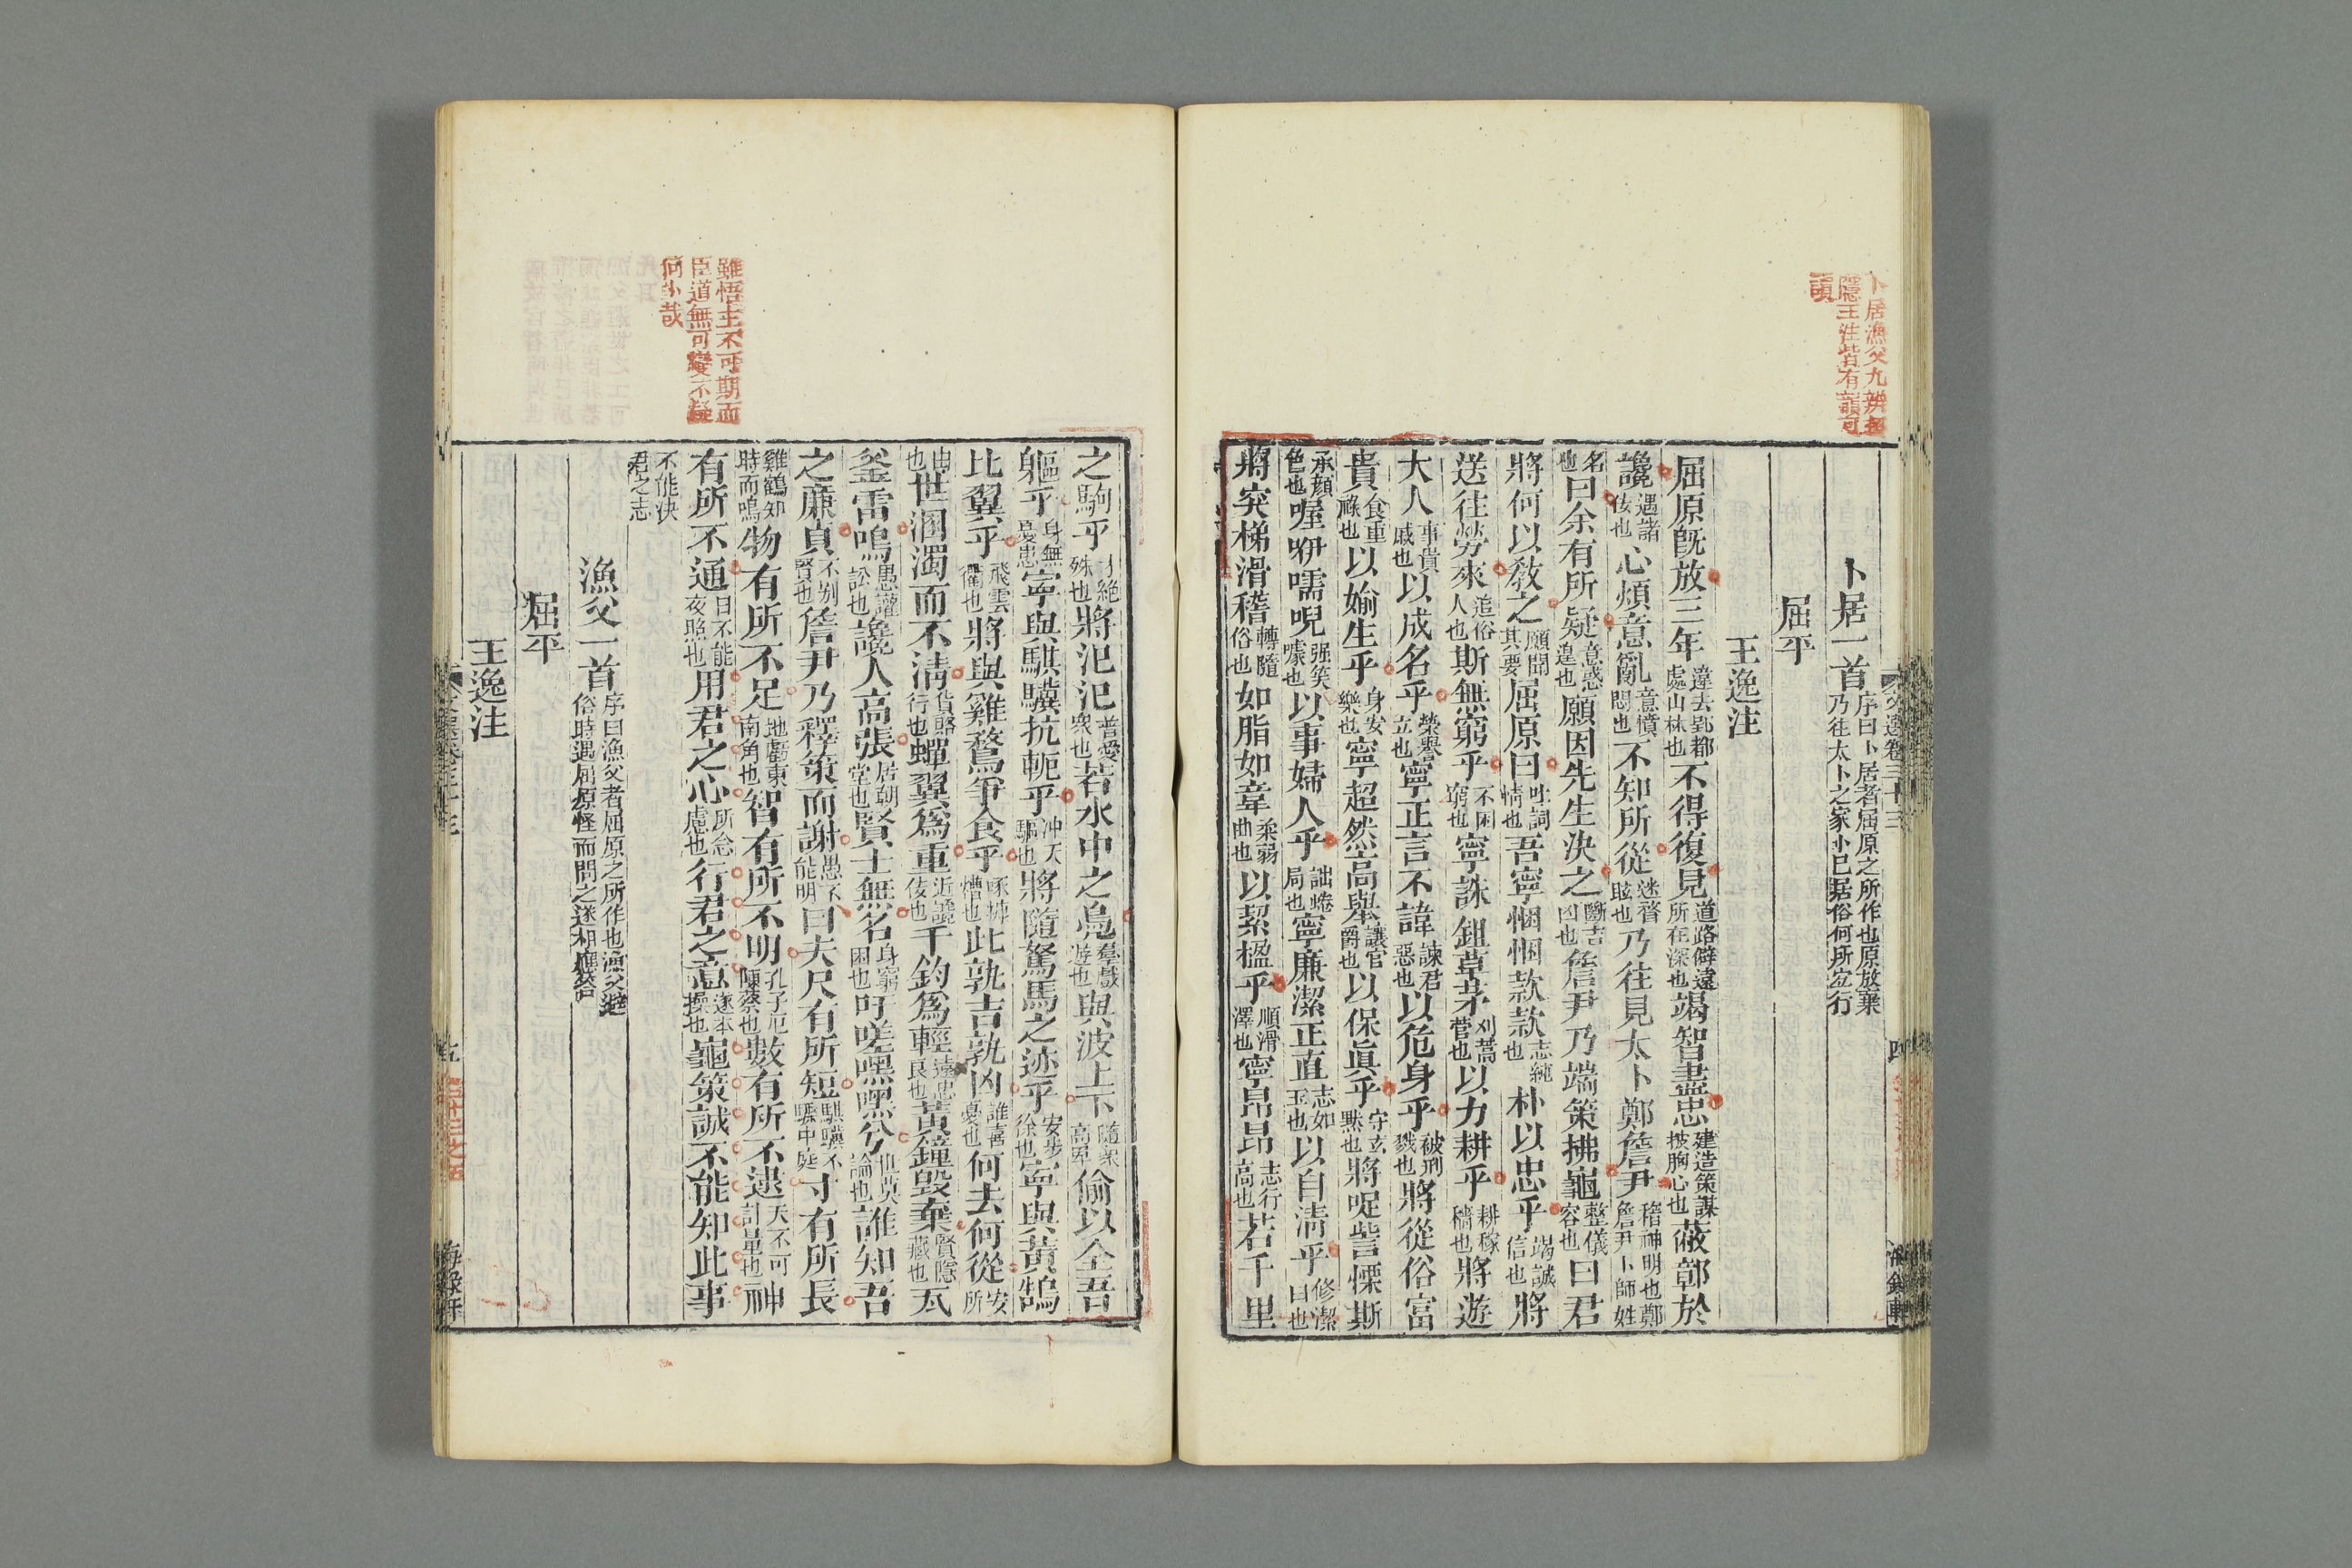 卜居漁父九辨招
隱王注皆有韻可
讀
文選卷三十三
四
海錄軒
卜居一首序曰卜居者屈原之所作也原放棄乃往太卜之家卜己居俗何所宜行
屈平
王逸注
屈原既放三年違去郢都處山林也不得復見道路僻遠所在深也竭智盡忠建造策謀披胸心也蔽鄣於
讒遇諸佞也心煩意亂意憤悶也不知所從迷瞀眩也乃往見太卜鄭詹尹稽神明也鄭詹尹卜師姓
名也曰余有所疑意惑遑也願因先生決之斷吉凶也詹尹乃端策拂龜整儀容也曰君
將何以教之願聞其要屈原曰吐詞情也吾寧悃悃款款志純也朴以忠乎竭誠信也將
送往勞來追俗人也斯無窮乎不困窮也寧誅鉏草茅刈蒿菅也以力耕乎耕稼穡也將遊
大人事貴戚也以成名乎榮譽立也寧正言不諱諫君惡也以危身乎被刑戮也將從俗富
貴食重祿也以婾生乎身安樂也寧超然高舉讓官爵也以保眞乎守玄默也將哫訾慄斯
承顔色也喔咿嚅唲强笑噱也以事婦人乎詘蜷局也寧廉潔正直志如玉也以自清乎修潔白也
將突梯滑稽轉隨俗也如脂如韋柔弱曲也以絜楹乎順滑澤也寧昂昂志行高也若千里
雖悟主不可期而
臣道無可變不疑
何卜哉
之駒乎才絶殊也將氾氾普愛衆也若水中之鳧羣戲遊也與波上下隨衆高卑偷以全吾
軀乎身無憂患寧與騏驥抗軛乎沖天驅也將隨駑馬之迹乎安步徐也寧與黃鵠
比翼乎飛雲衢也將與雞鶩爭食乎啄糠糟也此孰吉孰凶誰喜憂也何去何從安所
由也世溷濁而不清貨賂行也蟬翼爲重近讒佞也千鈞爲輕遠忠良也黃鐘毀棄賢隱藏也瓦
釜雷鳴愚讙訟也讒人高張居朝堂也賢士無名身窮困也吁嗟嘿嘿兮世莫論也誰知吾
之廉貞不别賢也詹尹乃釋策而謝愚不能明曰夫尺有所短騏驥不驟中庭寸有所長
雞鶴知時而鳴物有所不足地虧東南角也智有所不明孔子厄陳蔡也數有所不逮天不可計量也神
有所不通日不能夜照也用君之心所念慮也行君之意遂本操也龜策誠不能知此事
不能決君之志
漁父一首序曰漁父者屈原之所作也漁父避俗時遇屈原怪而問之遂相應荅
屈平
王逸注
文選卷三十三
五
海錄軒